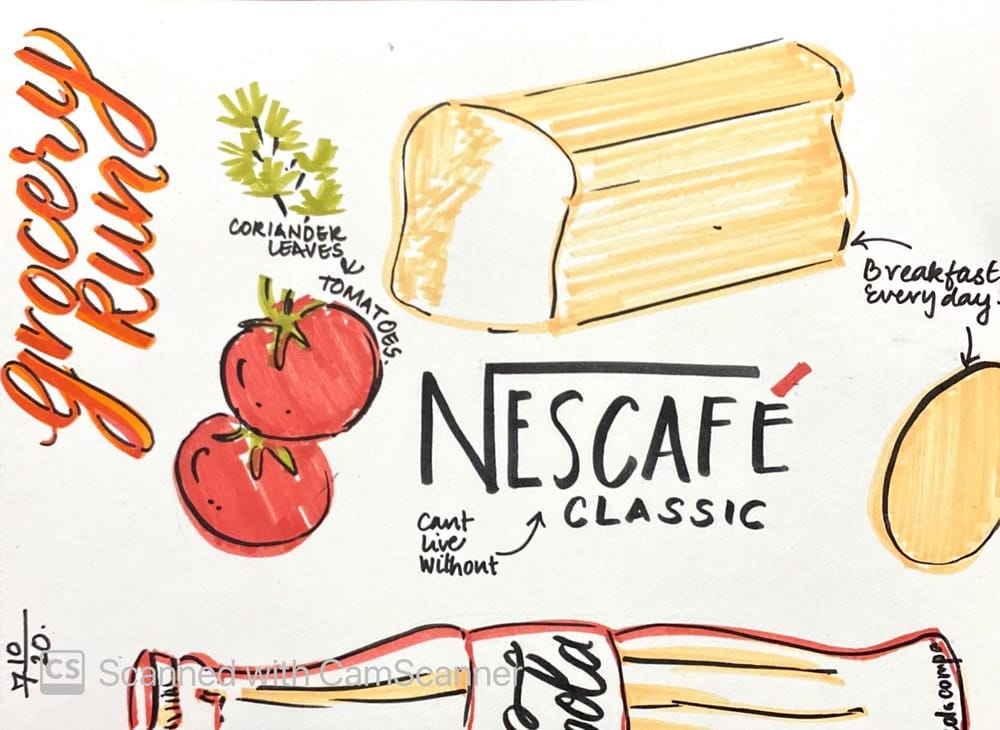 grocery
Run
CORIANDER
LEAVES
TOMATOES.
Breakfast
Everyday.
NESCAFÉ
CLASSIC
Cant
Live
Without
7/10
20.
CS Scanned with CamScanner